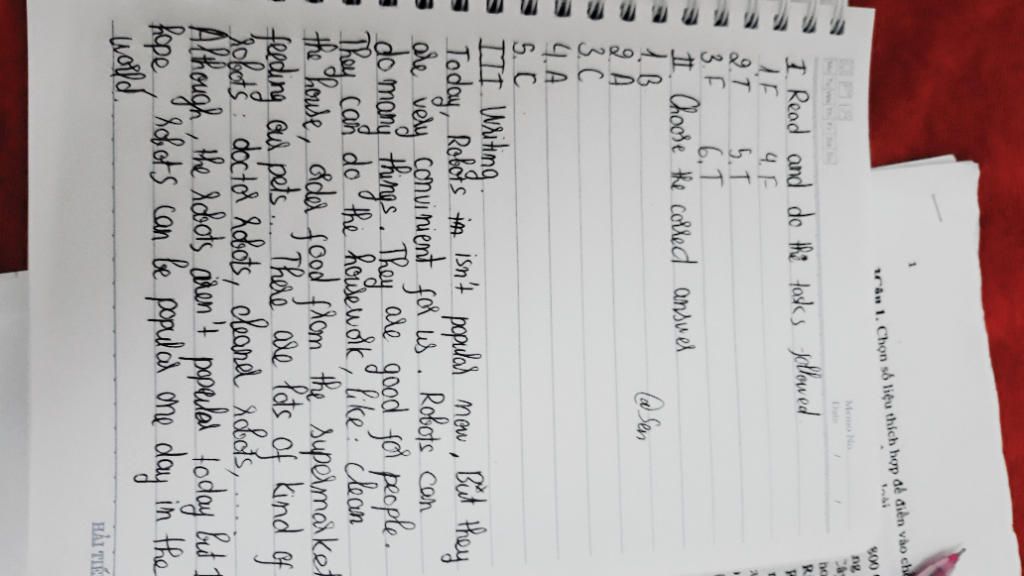 I. Read and do the tasks followed
1. F 4. F
2. T 5. T
3. F 6. T
II. Choose the collect answer
1. B
2. A
3. C
4. A
5. C
@Sen
III Writing.
Today, Robots isn't popular now, But they
are very convinient for us. Robots can
do many things. They are good for people.
They can do the housework, like: clean
the house, order food from the supermarket
feeding our pets... There are lots of kind of
robots: doctor robots, cleaner robots, .....
Although, the robots aren't popular today but I
hope, robots can be popular one day in the
world.
Memo No.
Date / /
HẢI TIẾ
1
1. Chọn số liệu thích hợp để điền vào ch
800